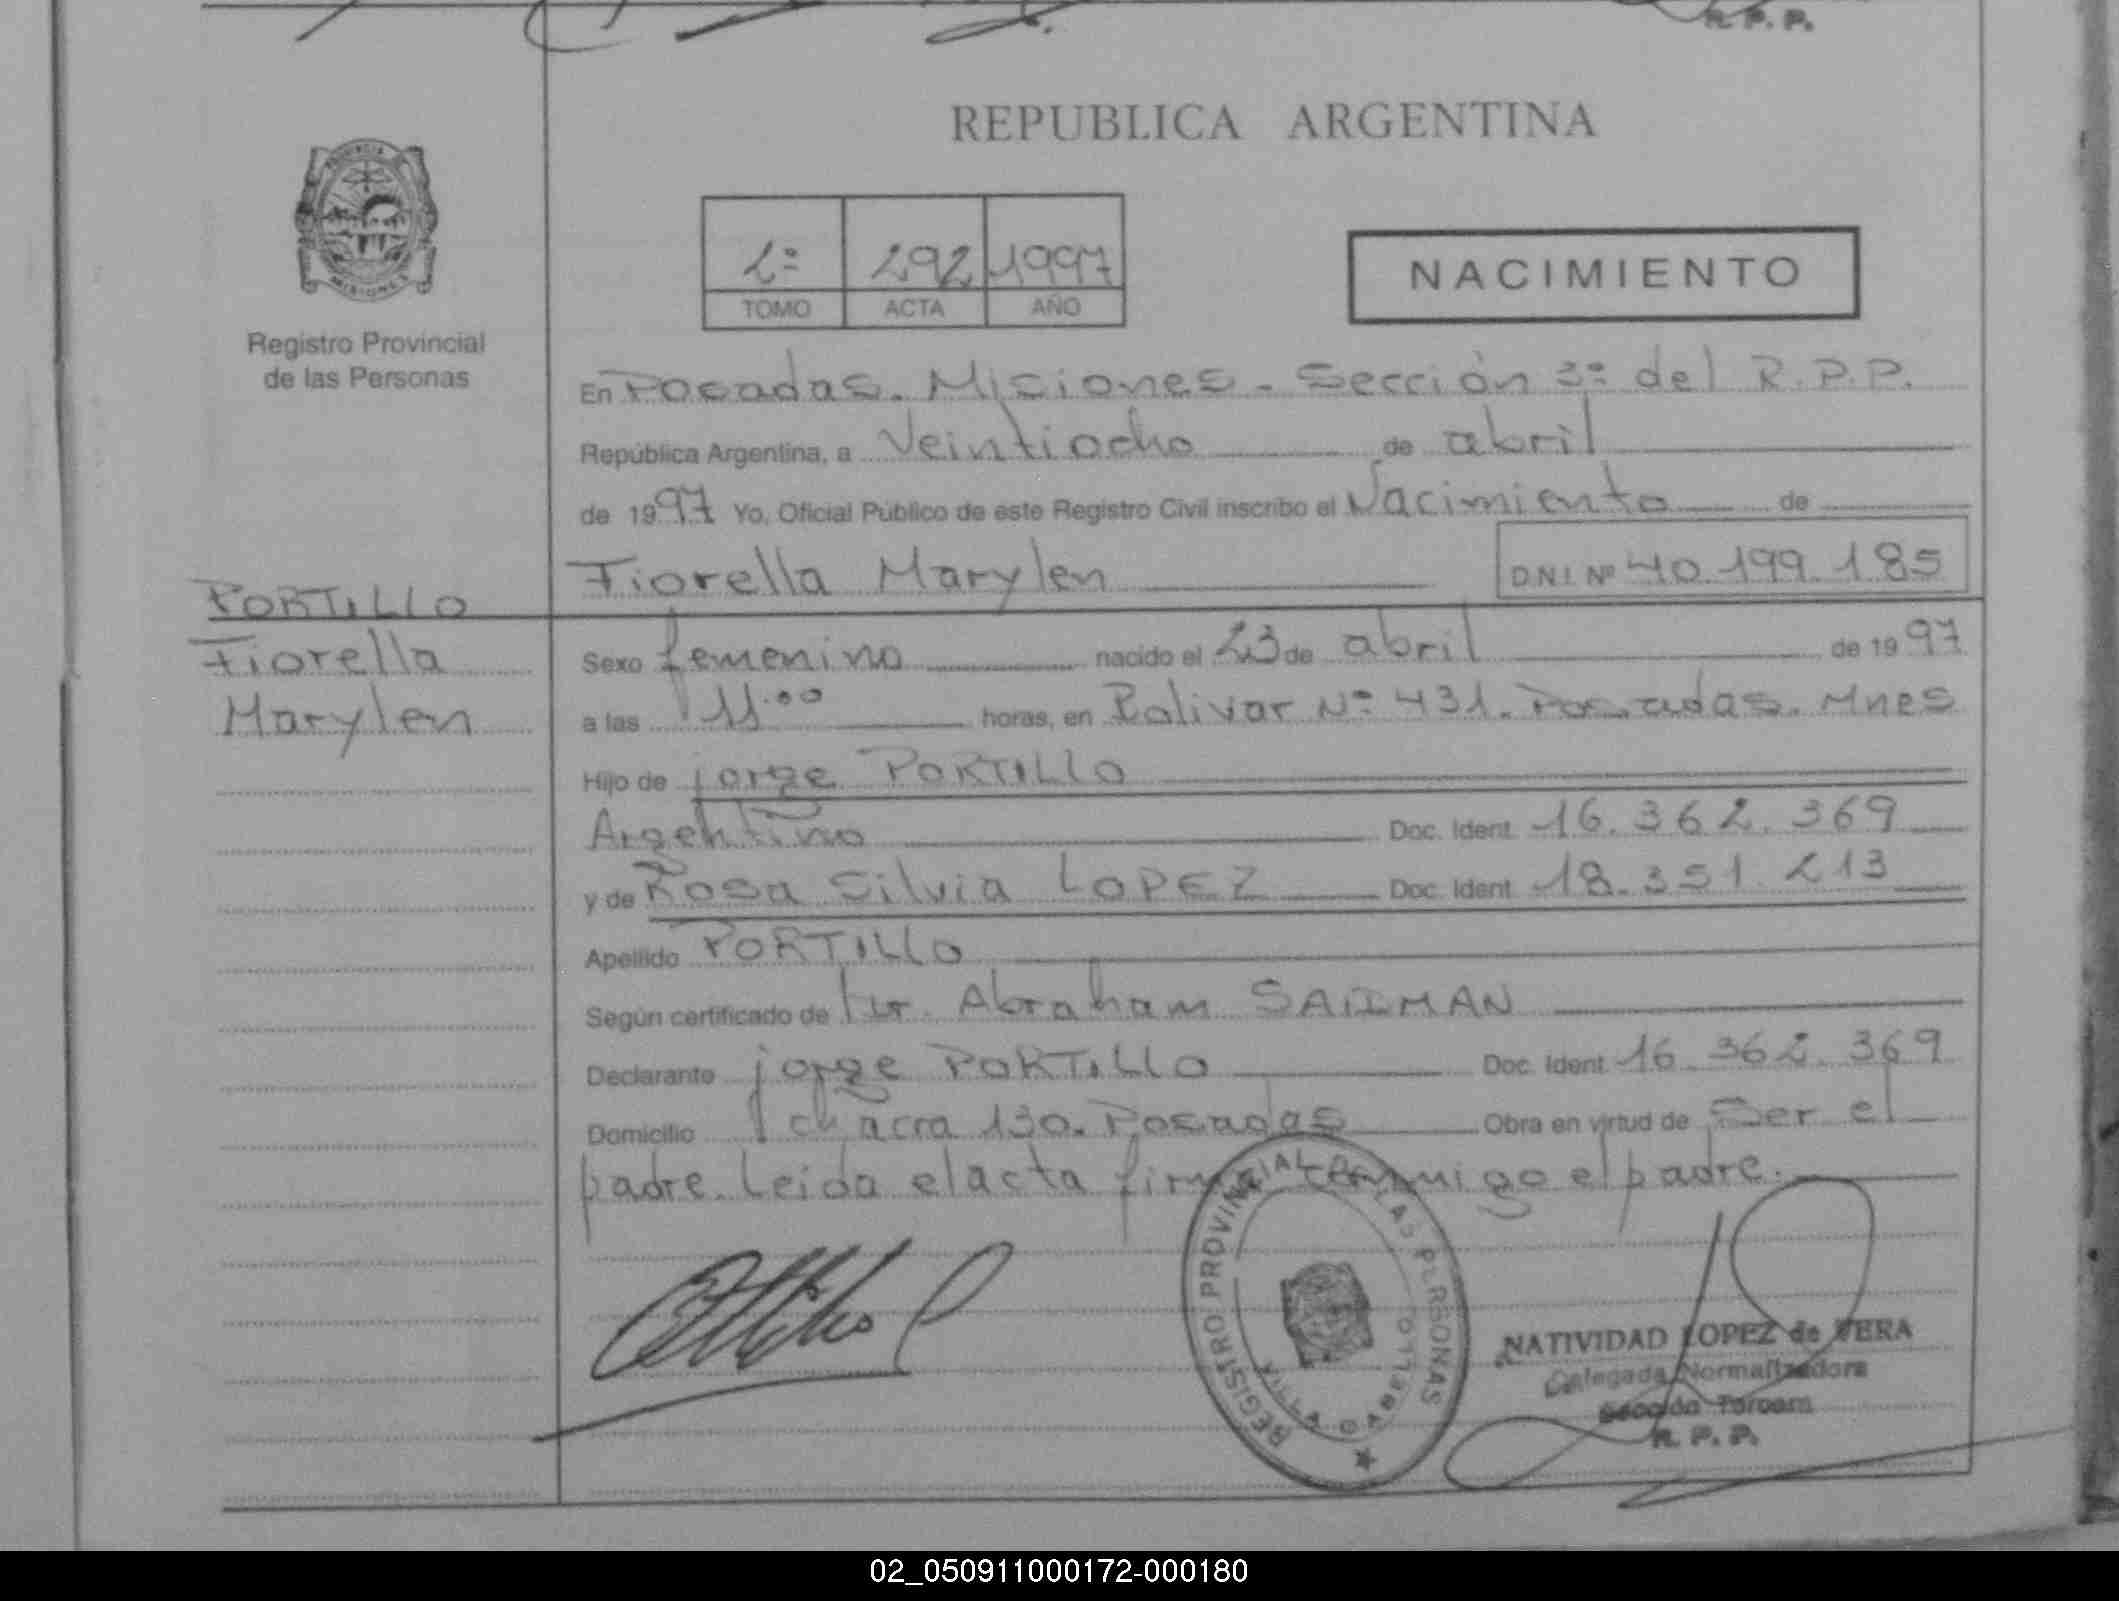 R. P. P.
REPUBLICA ARGENTINA
PROVINCIA
MISIONES
Registro Provincial
de las Personas
2º 292 1997
TOMO ACTA AÑO
NACIMIENTO
En Posadas. Misiones - Sección 3º del R.P.P.
República Argentina, a Veintiocho de abril
de 1997 Yo, Oficial Público de este Registro Civil inscribo el Nacimiento de
Fiorella Marylen D.N.I. Nº 40.199.185
PORTILLO
Fiorella
Marylen
Sexo femenino nacido el 23 de abril de 1997
a las 11.00 horas, en Bolivar Nº 431. Posadas. Mnes
Hijo de jorge PORTILLO
Argentino Doc. Ident. 16.362.369
y de Rosa Silvia LOPEZ Doc. Ident. 18.351.213
Apellido PORTILLO
Según certificado de Abraham
Declarante jorge PORTILLO Doc. Ident. 16.362.369
Domicilio chacra 130. Posadas Obra en virtud de Ser el
padre. Leida el acta firma conmigo el padre.
REGISTRO PROVINCIAL DE LAS PERSONAS
VILLA CABELLO
NATIVIDAD LOPEZ de VERA
Delegada Normalizadora
Sección Tercera
R. P. P.
02_050911000172-000180